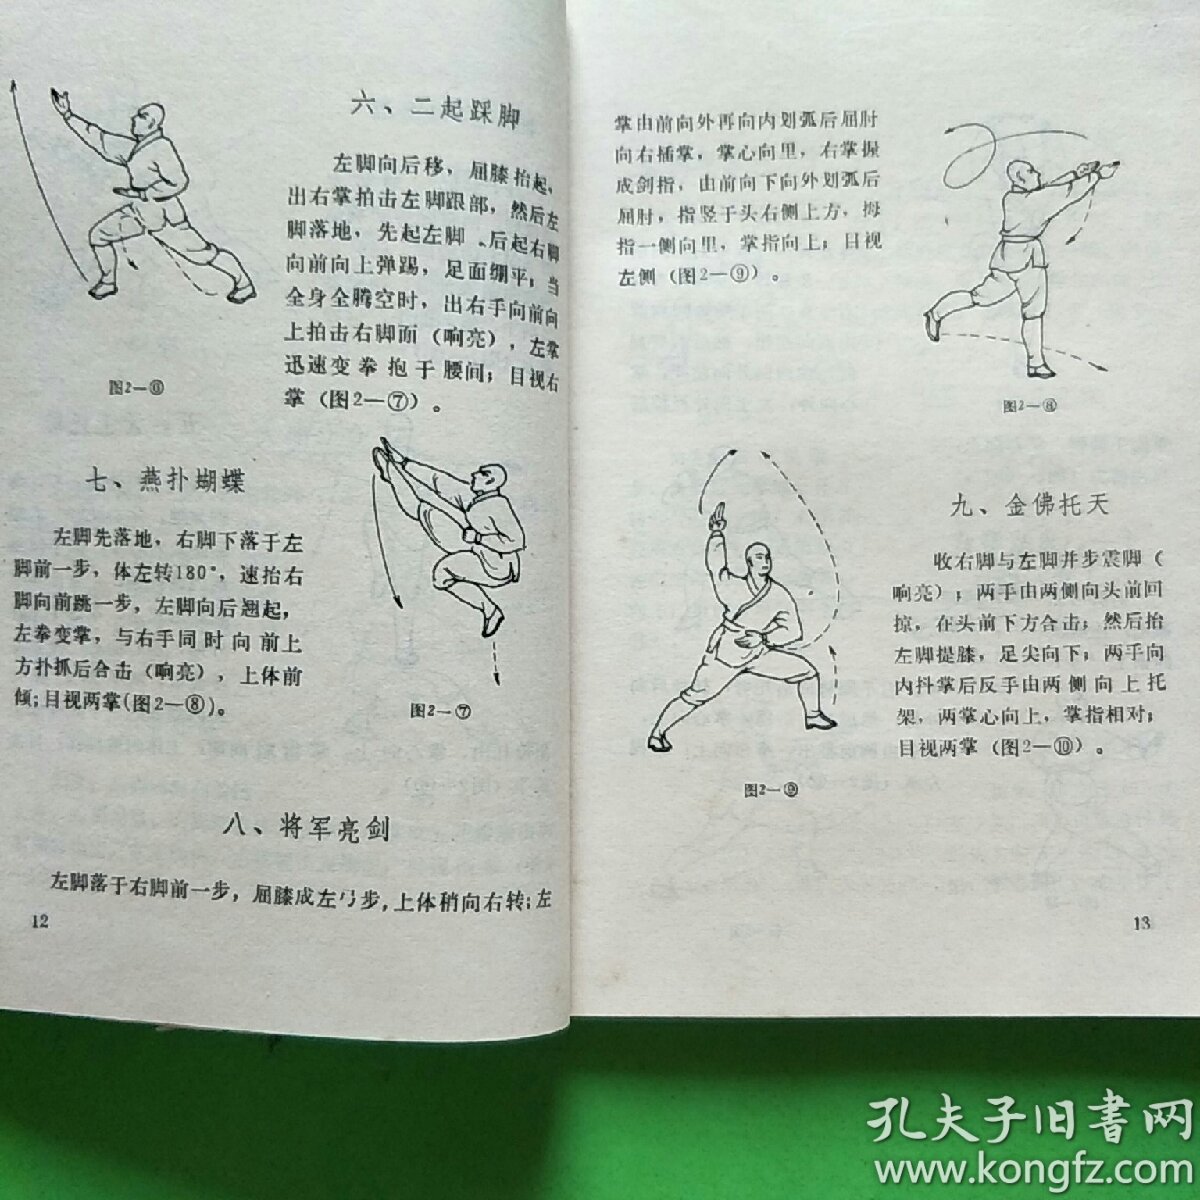 六、二起踩脚
左脚向后移，屈膝抬起，
出右掌拍击左脚跟部，然后左
脚落地，先起左脚、后起右脚
向前向上弹踢，足面绷平；当
全身全腾空时，出右手向前向
上拍击右脚面（响亮），左掌
迅速变拳抱于腰间；目视右
掌（图2—⑦）。
图2—⑥
七、燕扑蝴蝶
左脚先落地，右脚下落于左
脚前一步，体左转180°，速抬右
脚向前跳一步，左脚向后翘起，
左拳变掌，与右手同时向前上
方扑抓后合击（响亮），上体前
倾；目视两掌(图2—⑧)。
图2—⑦
八、将军亮剑
左脚落于右脚前一步，屈膝成左弓步，上体稍向右转；左
12
掌由前向外再向内划弧后屈肘
向右插掌，掌心向里，右掌握
成剑指，由前向下向外划弧后
屈肘，指竖于头右侧上方，拇
指一侧向里，掌指向上；目视
左侧（图2—⑨）。
图2—⑧
九、金佛托天
收右脚与左脚并步震脚（
响亮）；两手由两侧向头前回
掠，在头前下方合击；然后抬
左脚提膝，足尖向下；两手向
内抖掌后反手由两侧向上托
架，两掌心向上，掌指相对；
目视两掌（图2—⑩）。
图2—⑨
13
孔夫子旧书网
www.kongfz.com